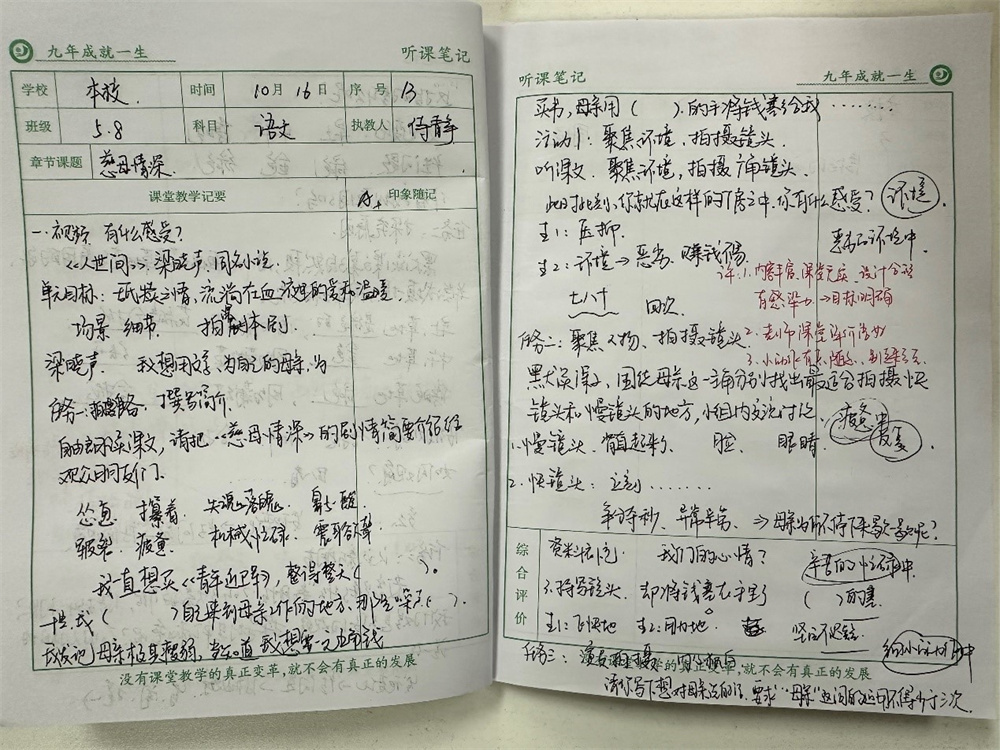 九年成就一生 听课笔记
学校 本校 时间 10月16日 序号 13
班级 5.8 科目 语文 执教人 静
章节课题 慈母情深
课堂教学记要 印象随记
A+
一.视频 有什么感受?
《人世间》 梁晓声.同名小说.
单元目标: 舐犊之情,流淌在血液里的爱和温暖
场景 细节 拍摄剧本剧.
梁晓声. 我想用文字,为自己的母亲,为
任务一: 撰写简介.
自由朗读课文,请把《慈母情深》的剧情简要介绍给
观众朋友们.
怂恿 攥着 失魂落魄 鼻子一酸
疲惫 机械忙碌 震耳欲聋
我一直想买《青年近卫军》,整得整天( ).
于是,我( )自己来到母亲工作的地方,那里噪声( ).
我发现母亲极其瘦弱,当知道我想要一元五角钱
没有课堂教学的真正变革,就不会有真正的发展
听课笔记 九年成就一生
买书,母亲用( )的手将钱塞给我……
活动1: 聚焦环境,拍摄镜头.
听课文 聚焦环境,拍摄广角镜头.
此时此刻,你就在这样的厂房之中.你有什么感受? 环境
生1: 压抑. 恶劣的环境中
生2: 环境→恶劣 赚钱不易
评:1.内容丰富,课堂充实、设计合理
七八十 回次 有感染力→目标明确
任务二: 聚焦人物、拍摄镜头 2.老师课堂评价
3.
默读课文,围绕母亲这一主角分别找出最适合拍摄快
镜头和慢镜头的地方,小组内交流讨论. 疲惫中
1.慢镜头. 直起来了 脸 眼睛.
2.快镜头: 立刻……
争分夺秒. 异常辛劳. ⇒母亲为何不停下来歇一歇呢?
综合评价
资料补充: 我们的心情? 辛苦的忙碌中.
3.特写镜头. 却将钱塞在手里 ( )的塞
生1: 飞快地 生2: 用力地.
任务三:
没有课堂教学的真正变革,就不会有真正的发展
请你写下想对母亲说的话,要求:"母亲"这词的运用不得少于三次.